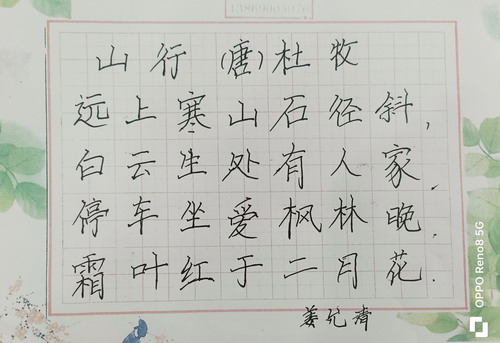 山行 (唐) 杜牧
远上寒山石径斜,
白云生处有人家.
停车坐爱枫林晚.
霜叶红于二月花.
OPPO Reno8 5G